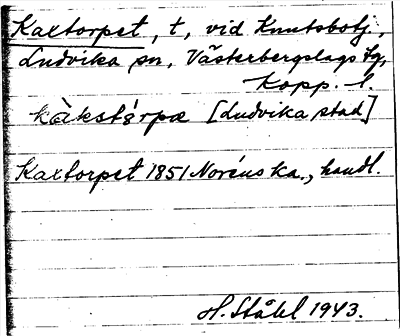 Kaxtorpet, t, vid Knutsbotj.,
Ludvika sn, Västerbergslags tg,
Kopp. l.
kàkstórpæ [Ludvika stad]
Kaxtorpet 1851 Noréns ka., handl.
H. Ståhl 1943.